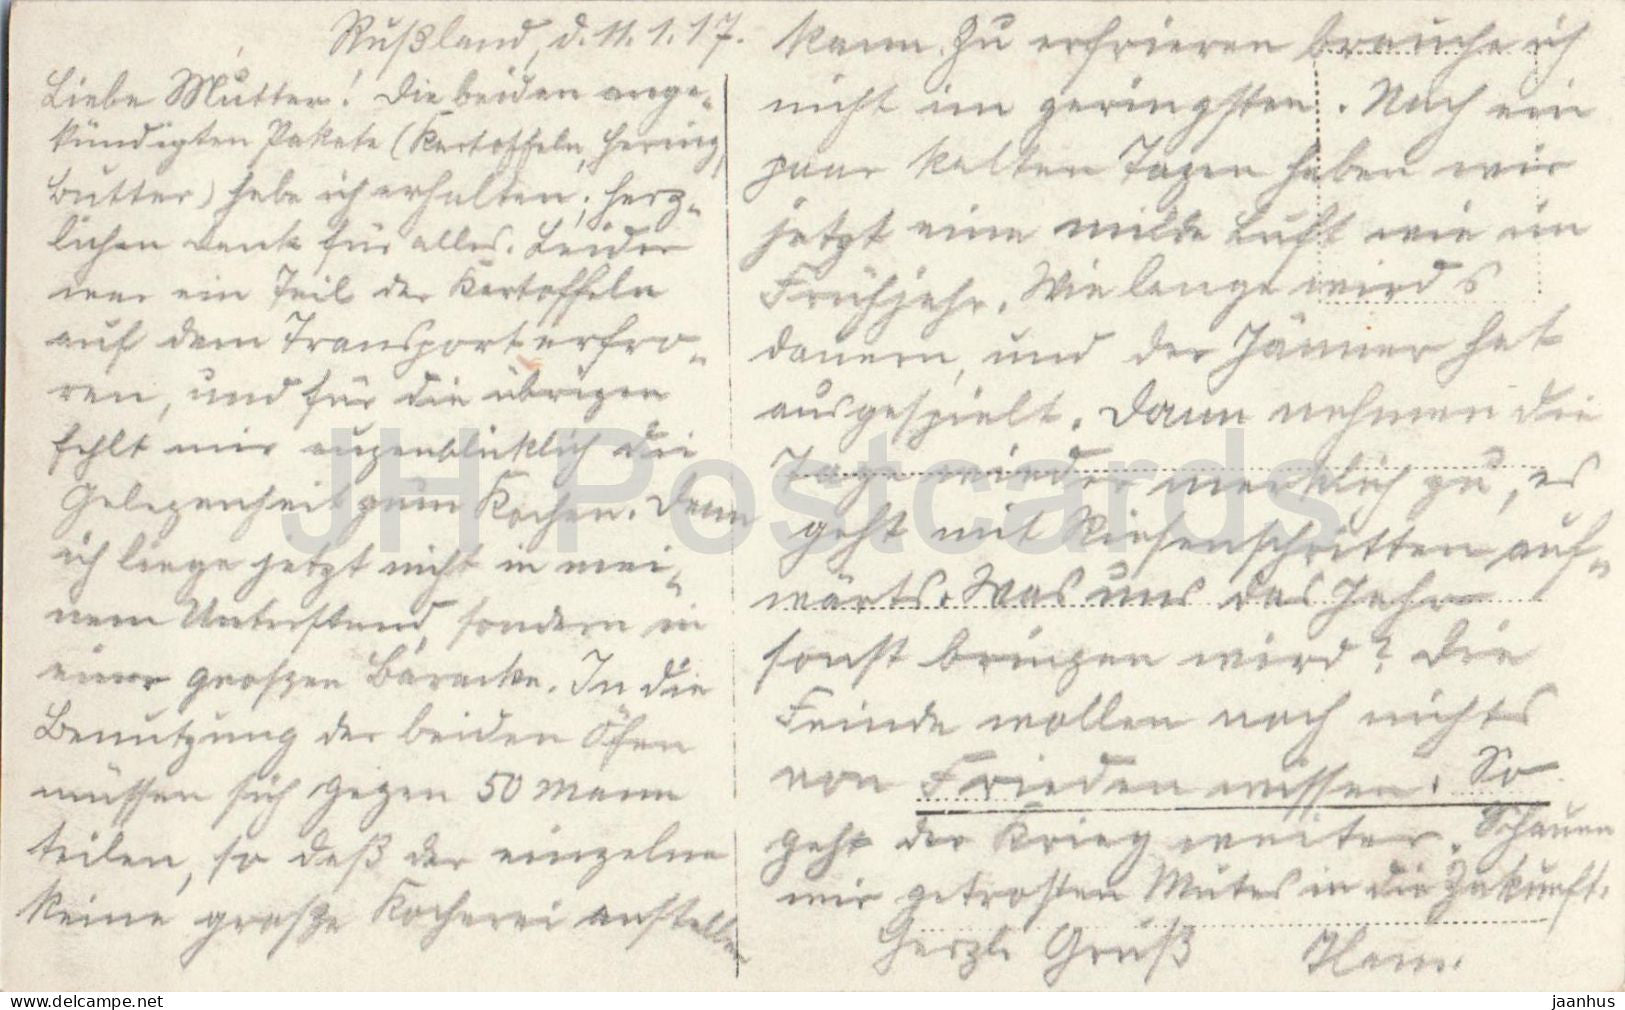 Rußland, d. 11. 1. 17.
Liebe Mutter! Die beiden ange-
kündigten Pakete (Kartoffeln, Hering,
Butter) habe ich erhalten; herz-
lichen Dank für alles. Leider
war ein Teil der Kartoffeln
auf dem Transport erfro-
ren, und für die übrigen
fehlt mir augenblicklich die
Gelegenheit zum Kochen. Denn
ich liege jetzt nicht in mei-
nem Unterstand, sondern in
einer großen Baracke. In die
Benutzung der beiden Öfen
müssen sich gegen 50 Mann
teilen, so daß der einzelne
keine große Kocherei anstellen
kann. Zu erfrieren brauche ich
nicht im geringsten. Nach ein
paar kalten Tagen haben wir
jetzt eine milde Luft wie im
Frühjahr. Wie lange wirds
dauern, und der Jänner hat
ausgespielt. Dann nehmen die
Tage wieder merklich zu, es
geht mit Riesenschritten auf-
wärts. Was uns das Jahr
sonst bringen wird? Die
Feinde wollen noch nichts
von Frieden wissen. So
geht der Krieg weiter. Schauen
wir getrosten Mutes in die Zukunft.
Herzl. Gruß Hans.
JH Postcards
delcampe.net
jaanhus